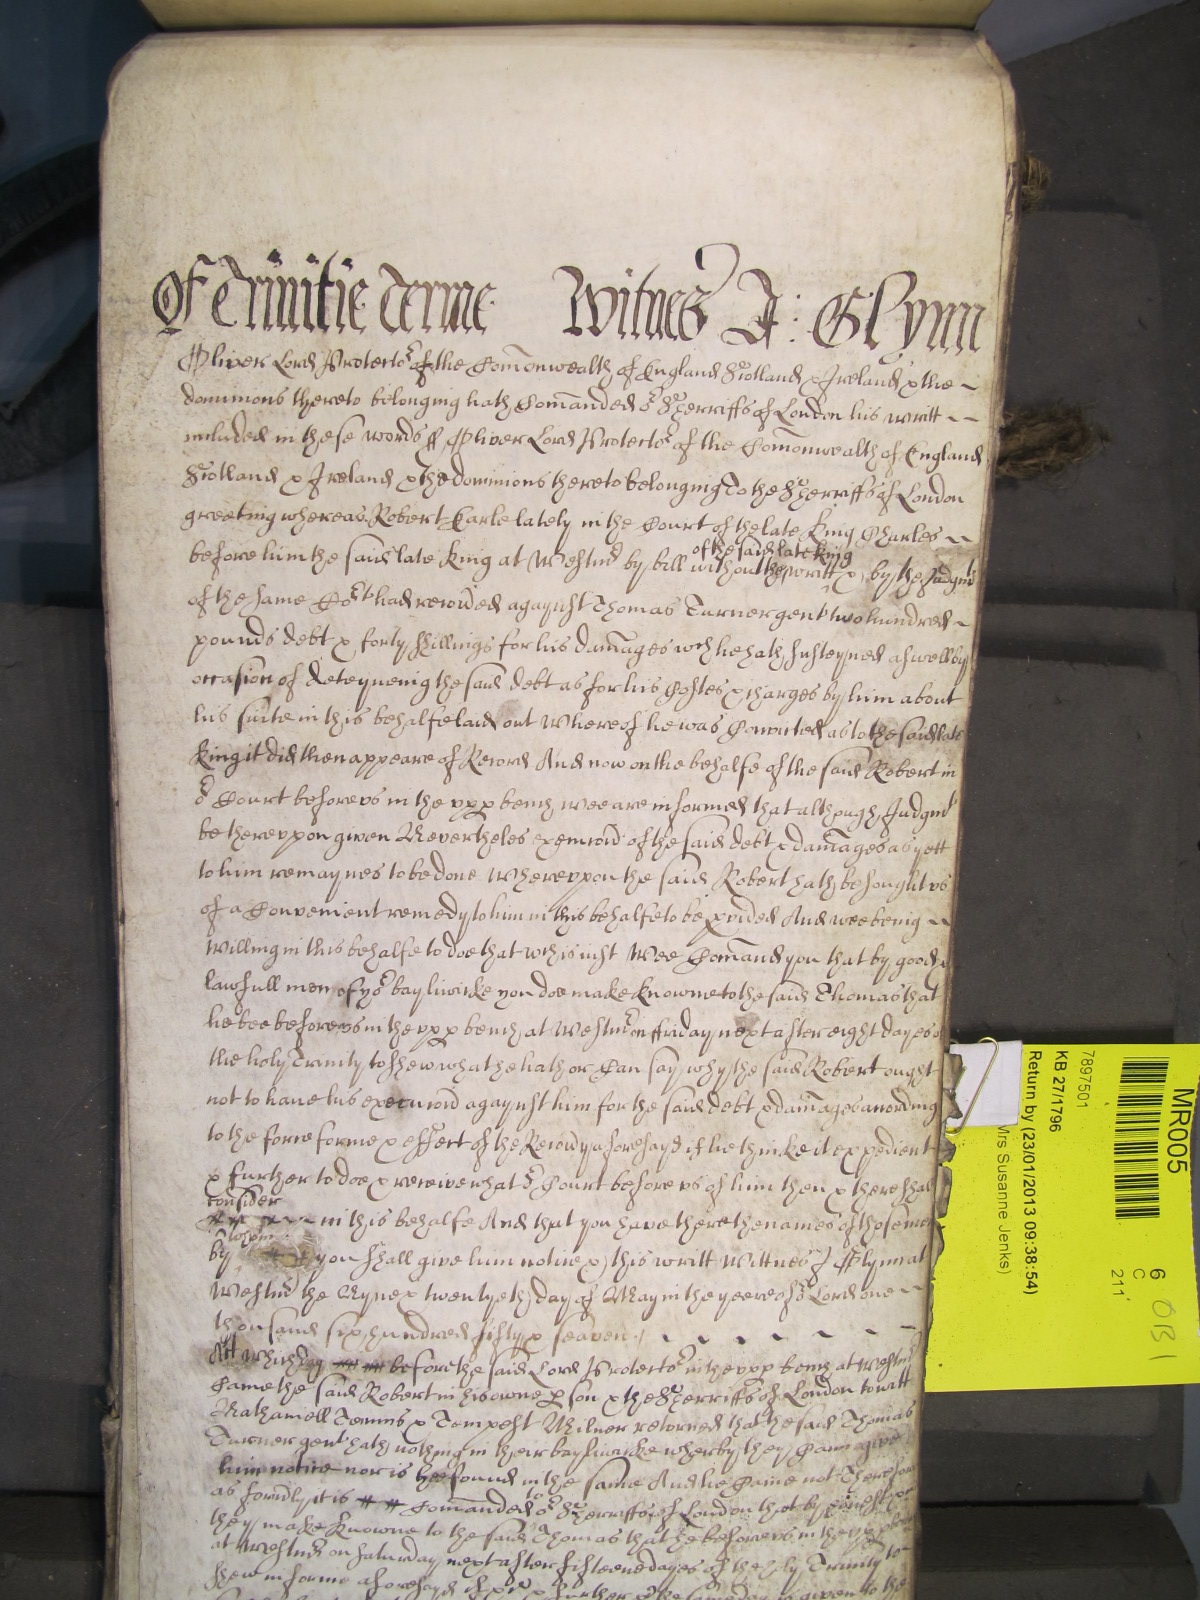 Of Trinitie Terme Witnes J: Glynn
Oliver Lord Protector of the Comonwealth of England Scotland & Ireland & the
dominions thereto belonging hath Comanded or Sherriffs of London his writt
included in these words ss Oliver Lord Protector of the Comonwealth of England
Scotland & Ireland & the dominions thereto belonging To the Sherriffs of London
greeting whereas Robert Earle lately in the Court of the late King Charles
before him the said late King at Westmr by bill without the writt of the said late king & by the Judgmt
of the same Cort had recovered agaynst Thomas Turner gent two hundred
pounds debt & forty shillings for his damages wch he hath susteyned aswell by
occasion of deteyneing the said debt as for his Costes & charges by him about
his suite in this behalfe laid out Whereof he was Convicted as to the said late
king it did then appeare of Record And now on the behalfe of the said Robert in
or Court before us in the upp bench wee are informed that although Judgmt
be thereuppon given Nevertheles execucion of the said debt & damages as yett
to him remaynes to be done Whereuppon the said Robert hath besought us
of a Convenient remedy to him in this behalfe to be pvided And wee being
willing in this behalfe to doe that wch is iust Wee Comand you that by good &
lawfull men of yor bayliwicke you doe make knowne to the said Thomas that
he bee before us in the upp bench at Westmr on ffriday next after eight dayes of
the holy Trinity to shew what he hath or Can say why the said Robert ought
not to have his execucion agaynst him for the said debt & damages according
to the force forme & effect of the Recovy aforesayd if he thinke it expedient
& further to doe & receive what or Court before us of him then & there shall
consider
in this behalfe And that you have there the names of those men
by whom you shall give him notice & this writt Wittnes J Glynn at
Westmr the Nyne & twentyeth day of May in the yeere of or Lord one
thousand six hundred fifty & seaven
Att which day before the said Lord Protector in the upp bench at Westmr
Came the said Robert in his owne pson & the Sherriffs of London to witt
Nathaniell Temms & Tempest Milner returned that the said Thomas
Turner gent hath nothing in their bayliwicke whereby they Cann give
him notice nor is hee found in the same And he Came not Therefore
as formerly it is Comanded to or Sherriffs of London that by
they make knowne to the said Thomas that he be before us in the upp bench
at Westmr on Saturday next after fifteene dayes of the holy Trinity to
shew in forme aforesayd if & further & the same day is given to the
MR005
7897501
KB 27/1796
Return by (23/01/2013 09:38:54)
Mrs Susanne Jenks)
6
C
211'
OB1